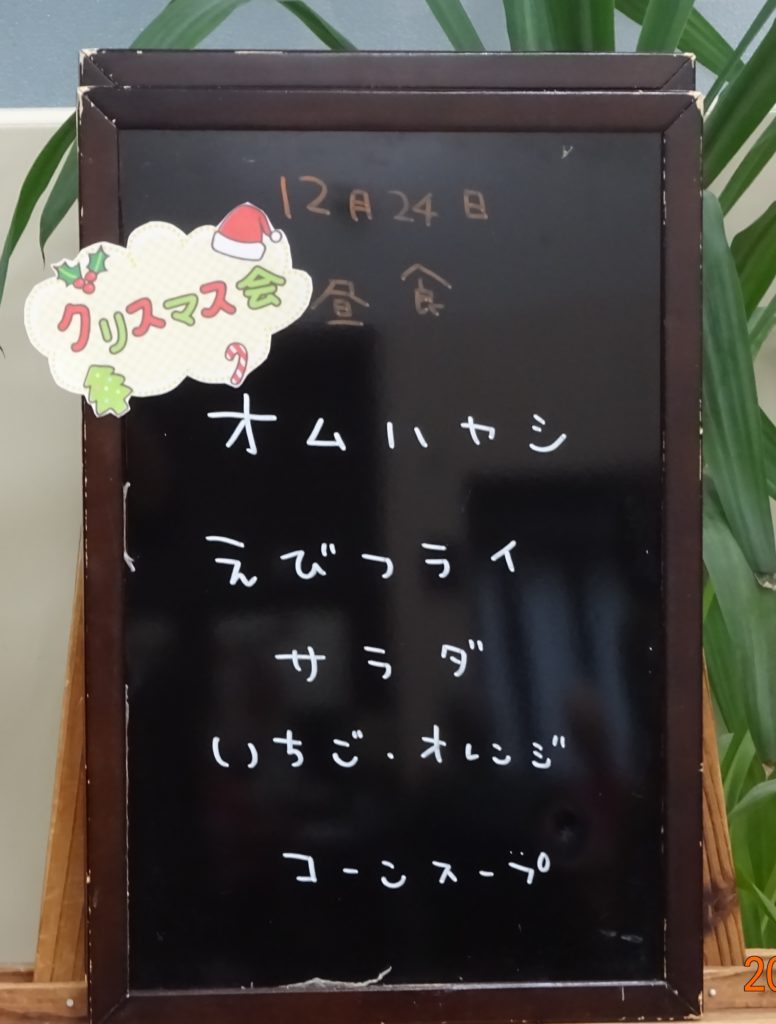 12月24日
クリスマス会
昼食
オムハヤシ
えびフライ
サラダ
いちご・オレンジ
コーンスープ
20